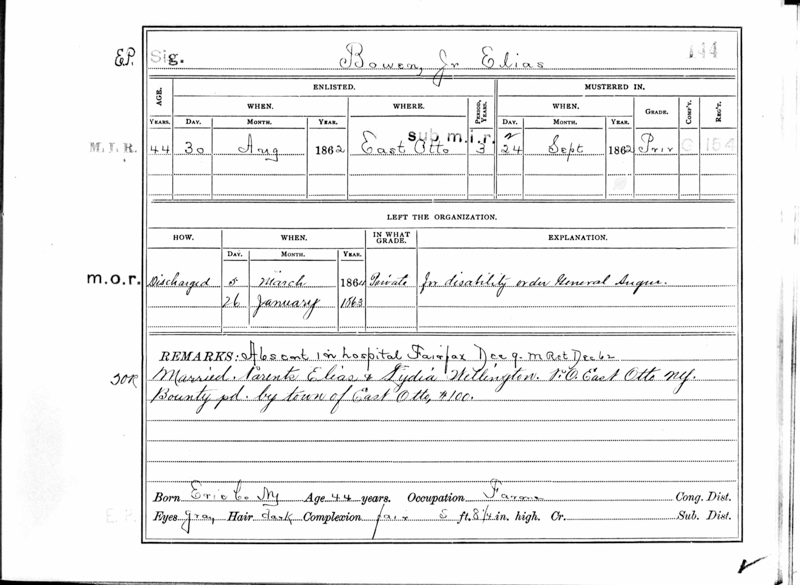 E.P. Sig. Bowen, Jr Elias 144
AGE. ENLISTED. MUSTERED IN.
WHEN. WHERE. PERIOD, YEARS. WHEN. GRADE. COMP'Y. REG'T.
YEARS. DAY. MONTH. YEAR. DAY. MONTH. YEAR.
sub. m.i.r.
M.I.R. 44 30 Aug 1862 East Otto 3 24 Sept 1862 Priv G 154
LEFT THE ORGANIZATION.
HOW. WHEN. IN WHAT GRADE. EXPLANATION.
DAY. MONTH. YEAR.
m.o.r. Discharged March 186 Private for disability order General Augur.
26 January 1863
REMARKS: Absent in hospital Fairfax Dec 9. M Ret Dec 62
TOR Married. Parents Elias & Lydia Willington. P.O. East Otto NY.
Bounty pd. by town of East Otto, $100.
Born Erie Co NY Age 44 years. Occupation Farmer Cong. Dist.
E.P. Eyes gray Hair dark Complexion fair 5 ft. 8 1/4 in. high. Cr. Sub. Dist.